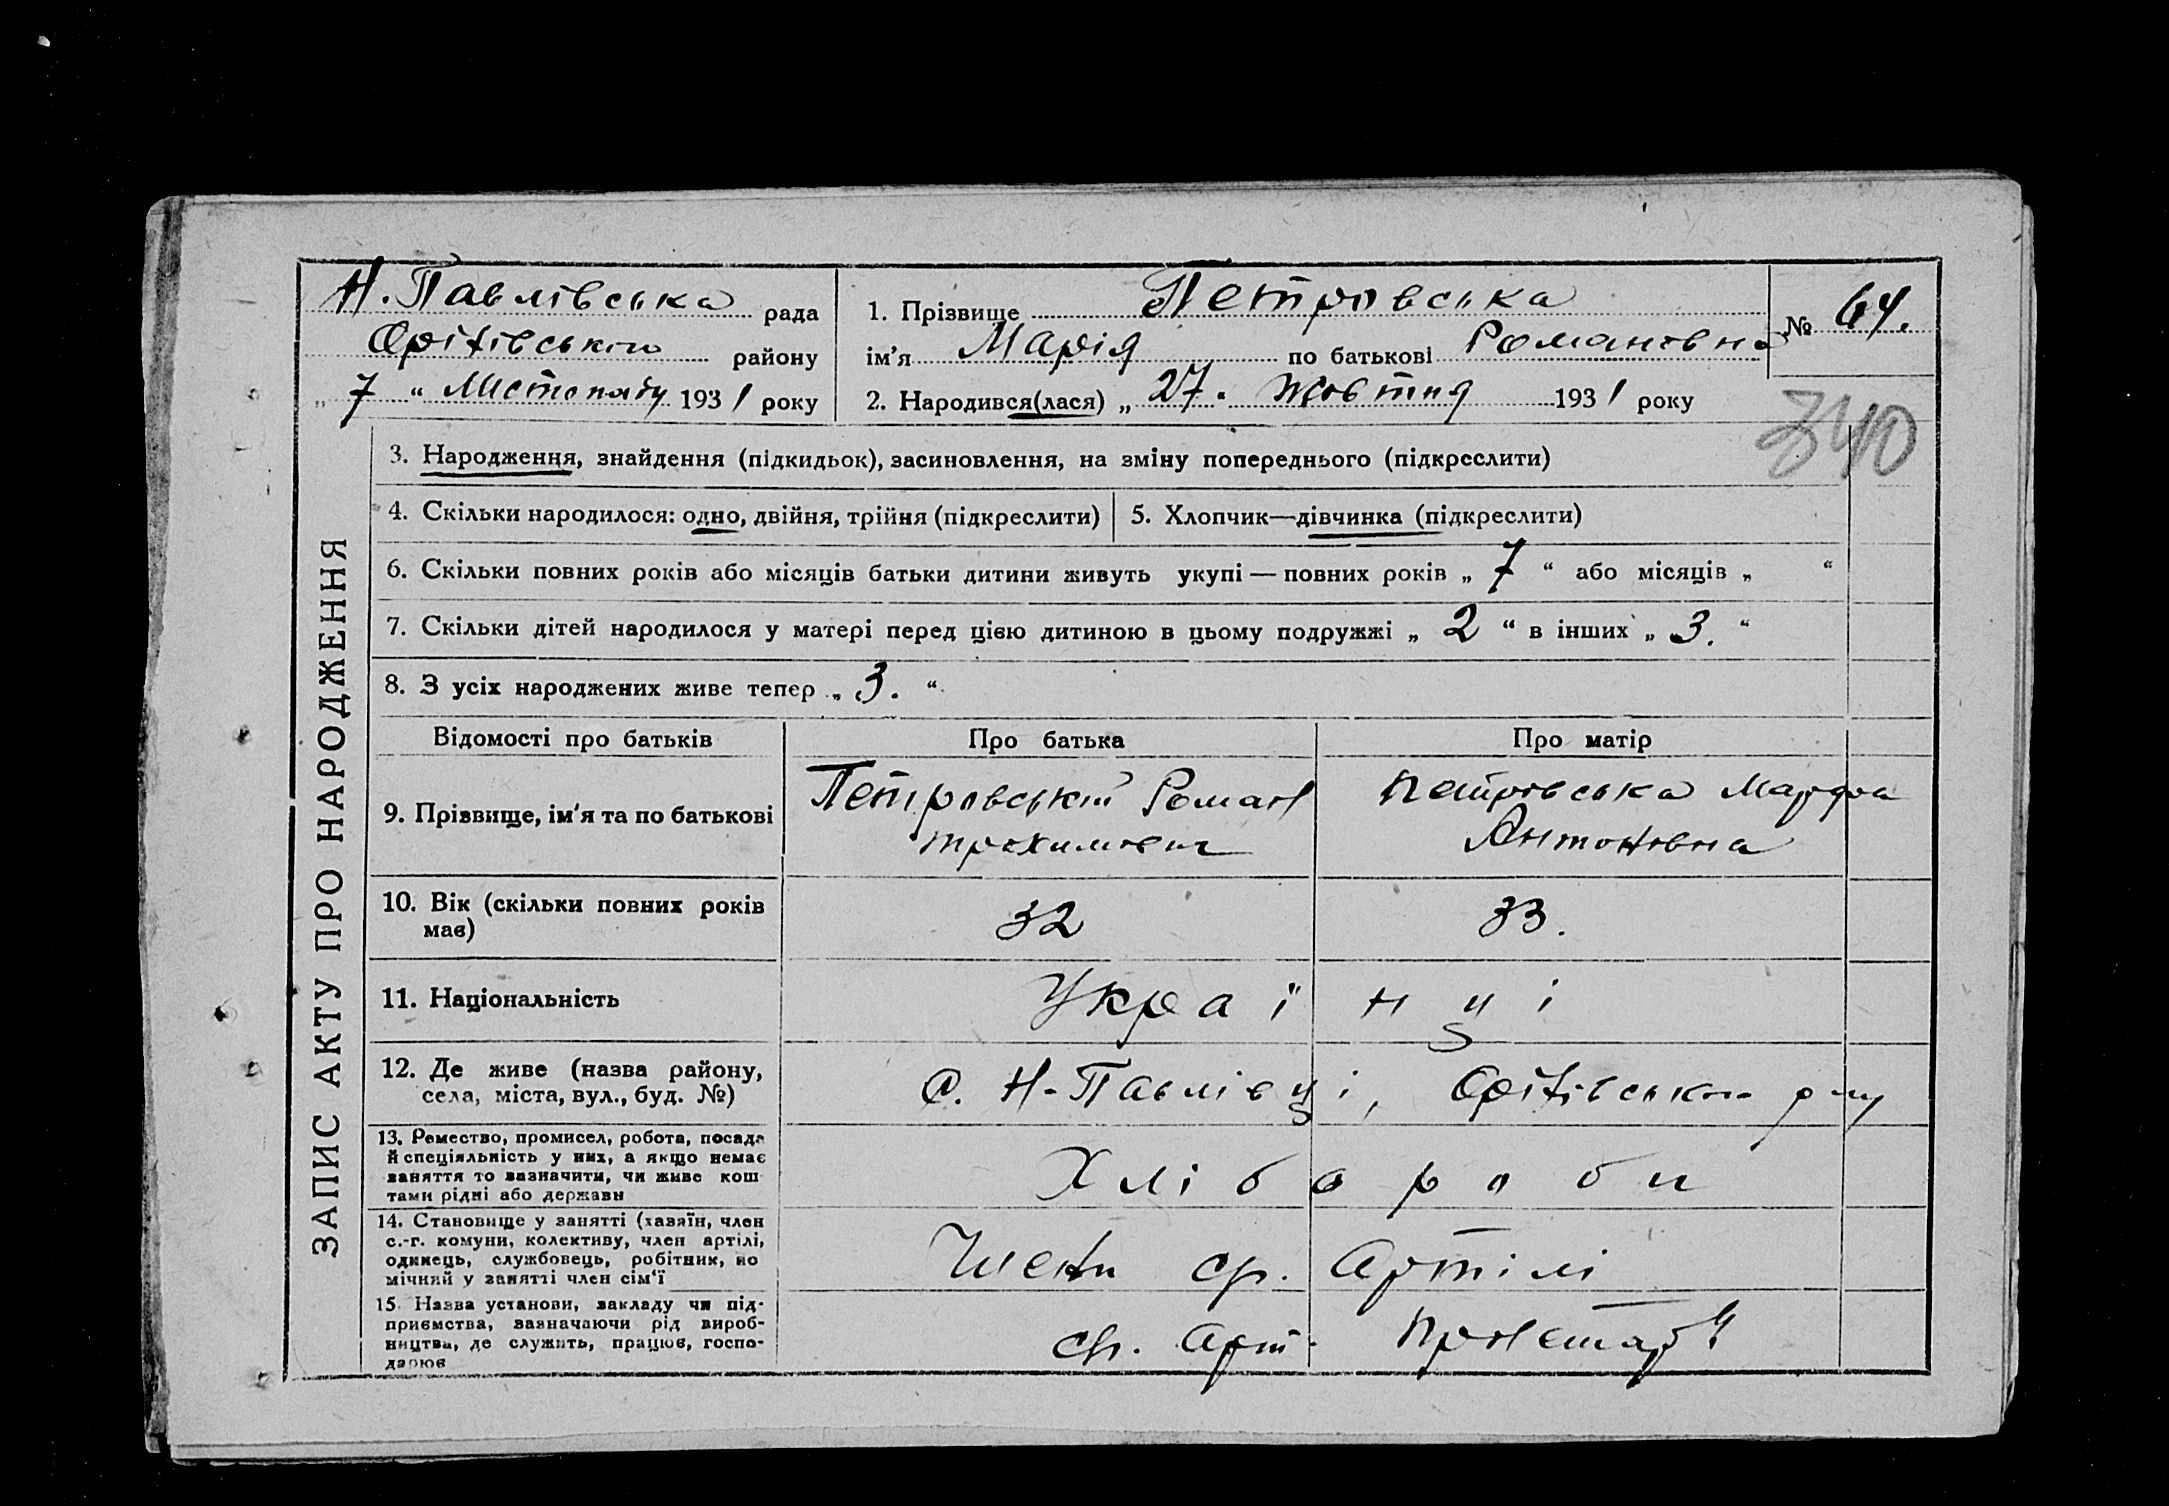 Н. Павлівська рада
Оріхівського району
„ 7 “ Листопаду 1931 року
1. Прізвище Петровська
ім’я Марія по батькові Романовна
2. Народився(лася) „ 27. Жовтня 1931 року
№ 64.
340
ЗАПИС АКТУ ПРО НАРОДЖЕННЯ
3. Народження, знайдення (підкидьок), засиновлення, на зміну попереднього (підкреслити)
4. Скільки народилося: одно, двійня, трійня (підкреслити) 5. Хлопчик—дівчинка (підкреслити)
6. Скільки повних років або місяців батьки дитини живуть укупі — повних років „ 7 “ або місяців „ “
7. Скільки дітей народилося у матері перед цією дитиною в цьому подружжі „ 2 “ в інших „ 3. “
8. З усіх народжених живе тепер „ 3. “
Відомості про батьків Про батька Про матір
9. Прізвище, ім’я та по батькові
Петровський Роман
Трохимович
Петровська Марфа
Антоновна
10. Вік (скільки повних років
має)
32 33.
11. Національність Українці
12. Де живе (назва району,
села, міста, вул., буд. №)
с. Н-Павлівці, Оріхівського р-ну
13. Ремество, промисел, робота, посада
й спеціяльність у них, а якщо немає
заняття то зазначити, чи живе кош
тами рідні або держави
Хлібороби
14. Становище у занятті (хазяїн, член
с.-г. комуни, колективу, член артілі,
одинець, службовець, робітник, по
мічний у занятті член сім‘ї
Члени ср. Артілі
15. Назва установи, закладу чи під-
приємства, зазначаючи рід вироб-
ництва, де служить, працює, госпо-
дарює
ср. Арт.